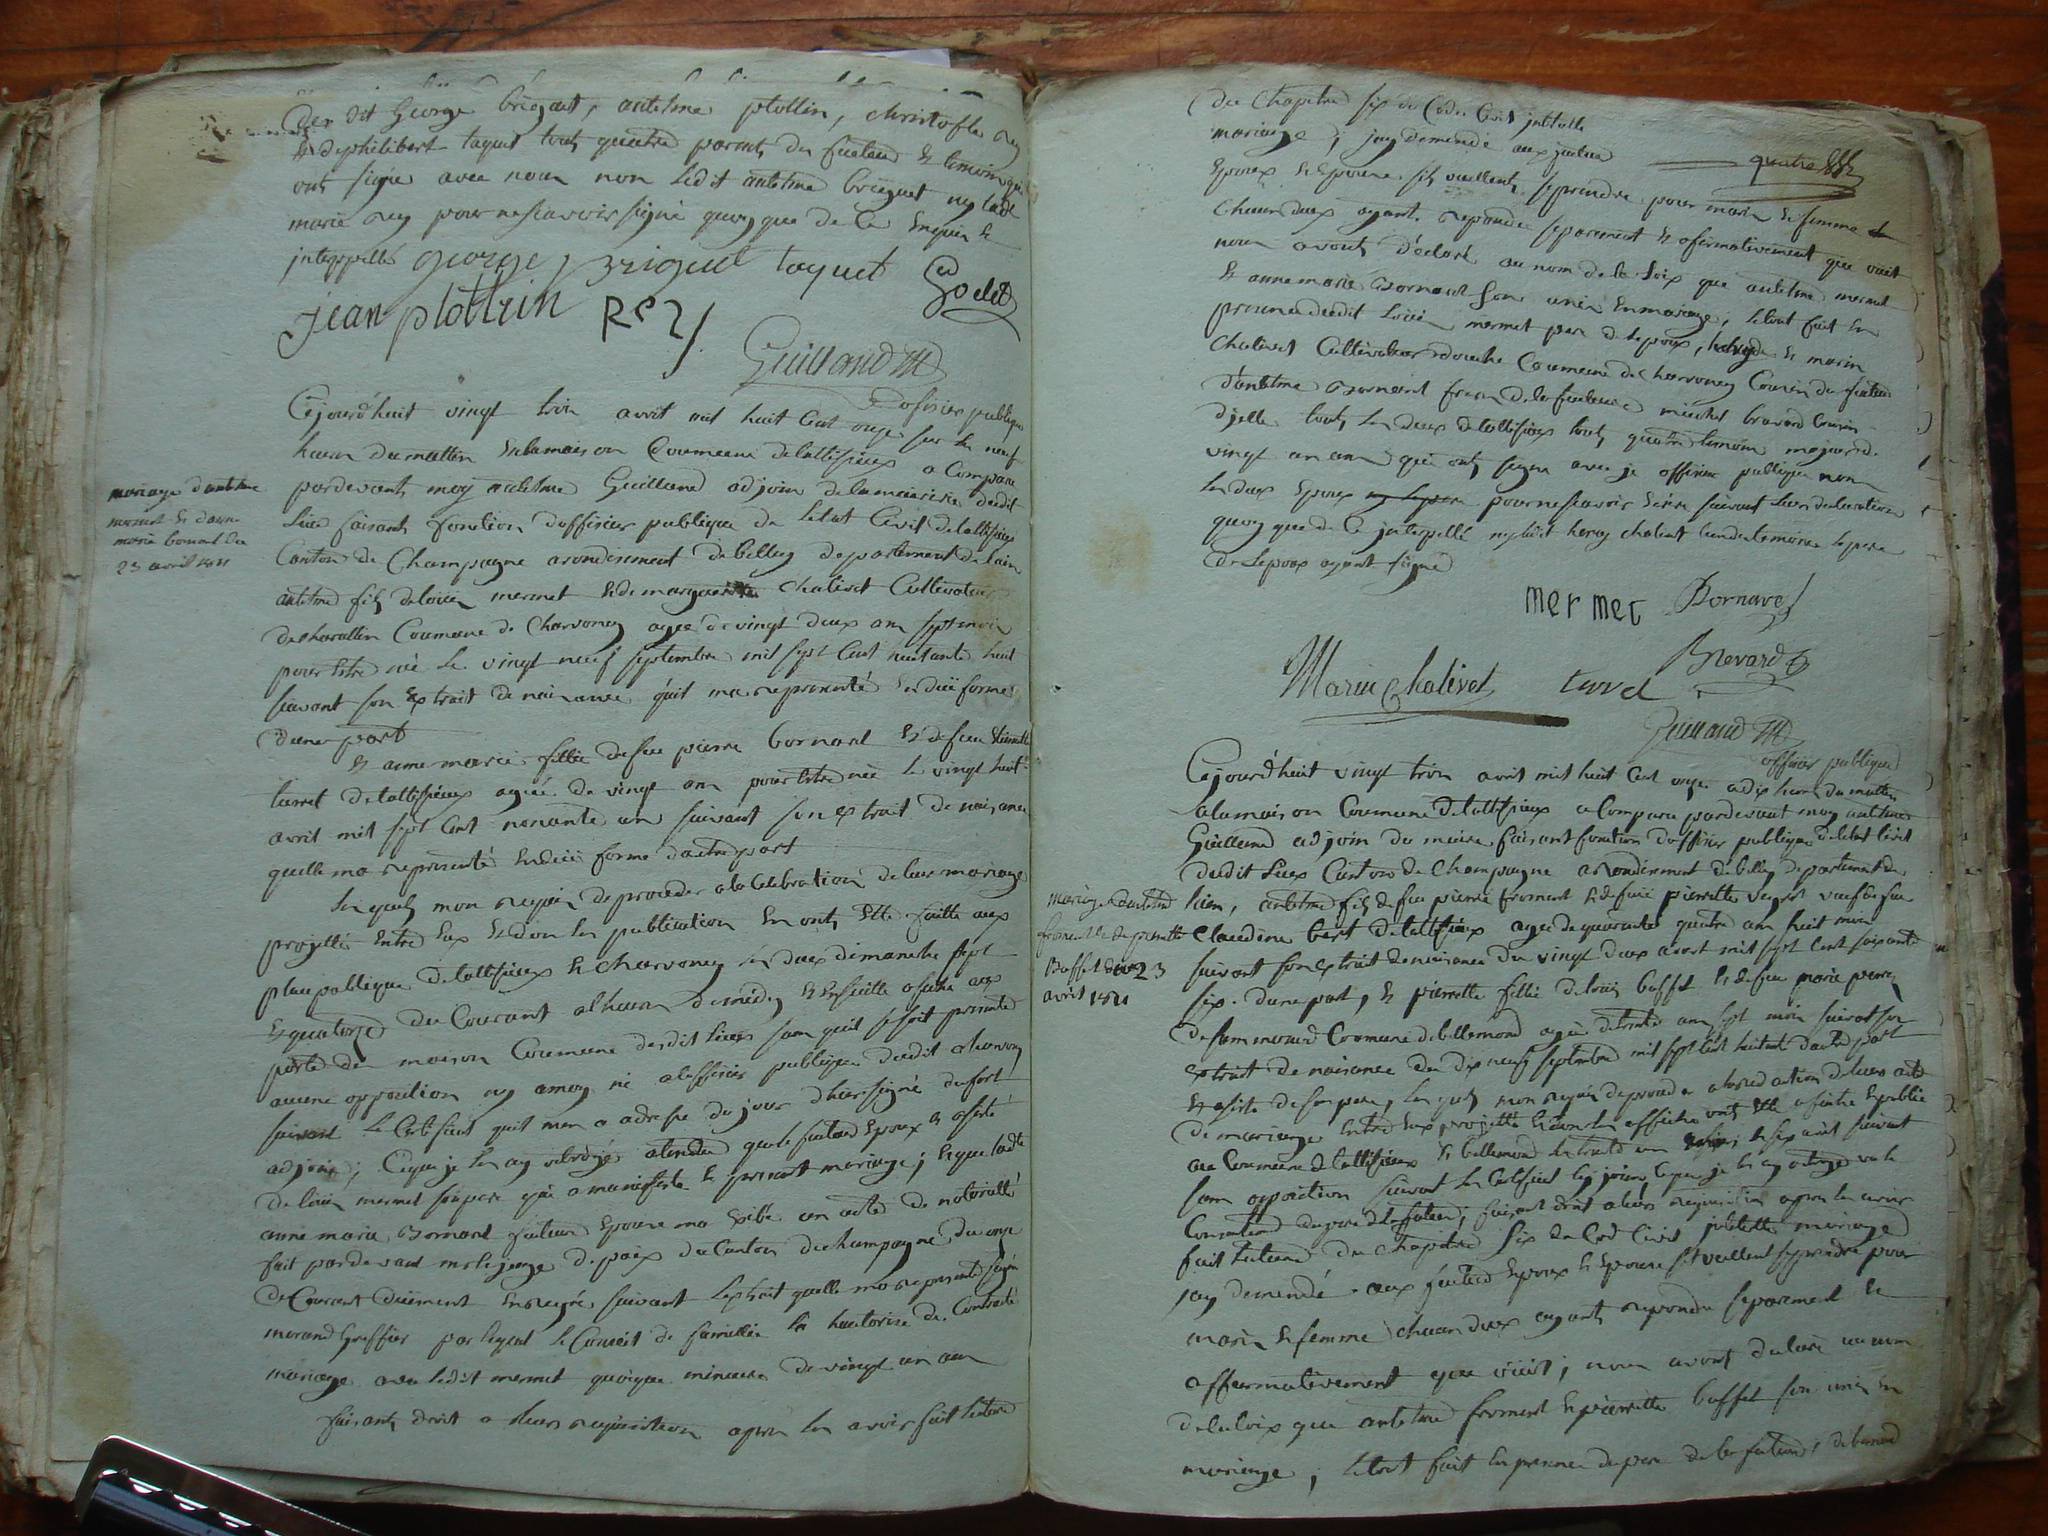 des dit George briguet, antelme plottin, christofle rey
et de philibert taquet touts quatre parents des futeurs et temoins qui
onts signe avec nous non ledit antelme briguet ny ladte
marie rey pour ne scavoir signé quoy que de ce enquis et
jnterppellé george briguet taquet Godet
jean plottin Rey
Guilland
officier publique
Cejourd'huit vingt trois avril mil huit Cent onze sur les neuf
heures du mattin en la maison Commune delattisieux a Comparu
mariage dantelme
mermet et danne
marie bornard du
23 avril 1811
pardevants moy antelme Guilland adjoin de la mairerie dudit
Lieu faisants fonction d'officier publique de L'etat Civil delattisieux
Canton de Champagne arondisement de belley departement de lain
antelme fils de louis mermet et de margueritte chalivet Cultivateur
de charallin Commune de Charvoney agee de vingt deux ans sept mois
pour etre née le vingt neuf septembre mil sept Cent huitante huit
suivant son Extrait de naisance quil ma representé en düe forme
dune part
et anne marie fillie de feu pierre bornard et de feue
turret delattisieux agée de vingt ans pour etre née le vingt huit
avril mil sept cent nonante un suivant son extrait de naisance
quelle ma represente en düe forme dautre part
les quels mon requis de proceder a la Celebration de leur mariage
projetté entre Eux et dont les publication En onts Ette faitte aux
place publique delattisieux et charvoney les deux dimanche sept
et quatorze du Courant alheure de midy et Ensuitte afiche aux
porte des maison Commune desdit lieux sans quil se soit presenté
aucune opposition ny amoy ni alofficier publique dudit charvoney
suivant le Certificat quil men a adresse du jour dhier signé dufort
adjoin; Ce que je les ay octroyé atendu que le futeur Epoux Est assisté
de louis mermet son pere qui a manifesté le present mariage; et que ladte
anne marie Bornard future Epouse ma Exibé un acte de notorietté
fait pardevant mr le juge de paix du Canton de champagne du onze
du Courant düement Enregré suivant lextrait quelle ma represente signé
morand Greffier par lequel le Conseil de famillie la hautorise de Contracté
mariage avec ledit mermet quoique mineure de vingt un ans
faisants droit a leurs requisition apres les avoir fait lecture
du Chapitre six du Code Civil jntitulle
mariage; jay demandé aux futeur quatre
Epoux et Epouse sils veullents se prendre pour marie et femme
chacun deux ayants repondu separement et afirmativement que ouit
nous avonts d'eclaré au nom de la Loix que antelme mermet
et anne marie Bornard sont unis en mariage; letout fait En
presence dudit Louis mermet pere de lepoux, et marin
chalivet Cultivateur Commune de Charvoney Cousin du futeur
d'antelme Bornard frere de la futeure michel bravard Cousin
djelle touts les deux delattisieux touts quatre temoins majeurs de
vingt un ans qui onts signe avec je officier publique non
les deux Epoux ny le pere pour ne scavoir Ecrire suivant leurs declaration
quoy que de Ce jnterpellé ny ledit chalivet lun des temoins le pere
de Lepoux ayant signé
mermet Bornard
Marin Chalivet turel Brevard
Guilland
officier publique
Cejourd'huit vingt trois avril mil huit Cent onze a dix heure du mattin
a la maison Commune delattisieux a Comparu pardevant moy antelme
Guilland adjoin du maire faisant fonction d'officier publique de letat Civil
dudit Lieu Canton de Champagne arondisement de belley departement de
mariage dantelme
froment et de pierrette
Buffet du 23
avril 1811
lain, antelme fils de feu pierre froment et de feue pierrette veufs de feu
Claudine bert delattisieux agee de quarante quatre ans huit mois
suivant son extrait de naisance du vingt deux aoust mil sept Cent soixante
six. dune part, et pierrette fillie de louis buffet et de feue marie
de sammoird Commune de bellemond agée de trente ans sept mois suivant son
extrait de naisance du dix neuf septembre mil sept Cent huitante dautre part
et assiste de son pere, les quels mon requis de proceder a la redaction de leurs acte
de mariage Entre Eux projetté et dont les affiches onts Ette afichee et publié
au Commune delattisieux et bellemond le trente un et six avril suivant
sans opposition suivant les Certificat cy joins ce que je les ay octroyé vu le
Consentement du pere de la future; faisant droit a leurs requisition apres les avoir
fait lecture du Chapitre six du Code Civil jntitulle mariage
jay demandé aux futeurs Epoux et Epouse sil veullent se prendre pour
marie et femme chacun deux ayants repondu separement et
affirmativement que ouit; nous avont declaré au nom
de la loix que antelme froment et pierrette buffet son unis en
mariage; letout fait En presence du pere de la future, de